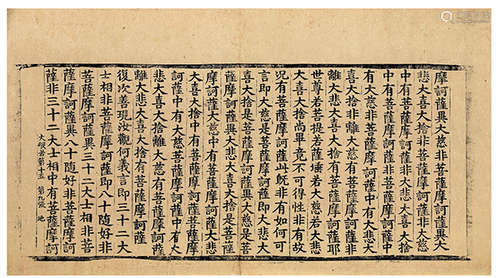 悲大喜大捨
中有菩薩摩訶薩非大悲大喜大捨
中有菩薩摩訶薩非菩薩摩訶薩中
有大慈非菩薩摩訶薩中有大悲大
喜大捨非離大慈有菩薩摩訶薩非
離大悲大喜大捨有菩薩摩訶薩耶
世尊若菩提若薩埵若大慈若大悲
大喜大捨尚畢竟不可得性非有故
況有菩薩摩訶薩此既非有如何可
言即大慈是菩薩摩訶薩即大悲大
喜大捨是菩薩摩訶薩異大慈是菩
薩摩訶薩異大悲大喜大捨是菩薩
摩訶薩大慈中有菩薩摩訶薩大悲
大喜大捨中有菩薩摩訶薩菩薩摩
訶薩中有大慈菩薩摩訶薩中有大
悲大喜大捨離大慈有菩薩摩訶薩
離大悲大喜大捨有菩薩摩訶薩
復次善現汝觀何義言即三十二大
士相非菩薩摩訶薩即八十隨好非
菩薩摩訶薩異三十二大士相非菩
薩摩訶薩異八十隨好非菩薩摩訶
薩非三十二大士相中有菩薩摩訶